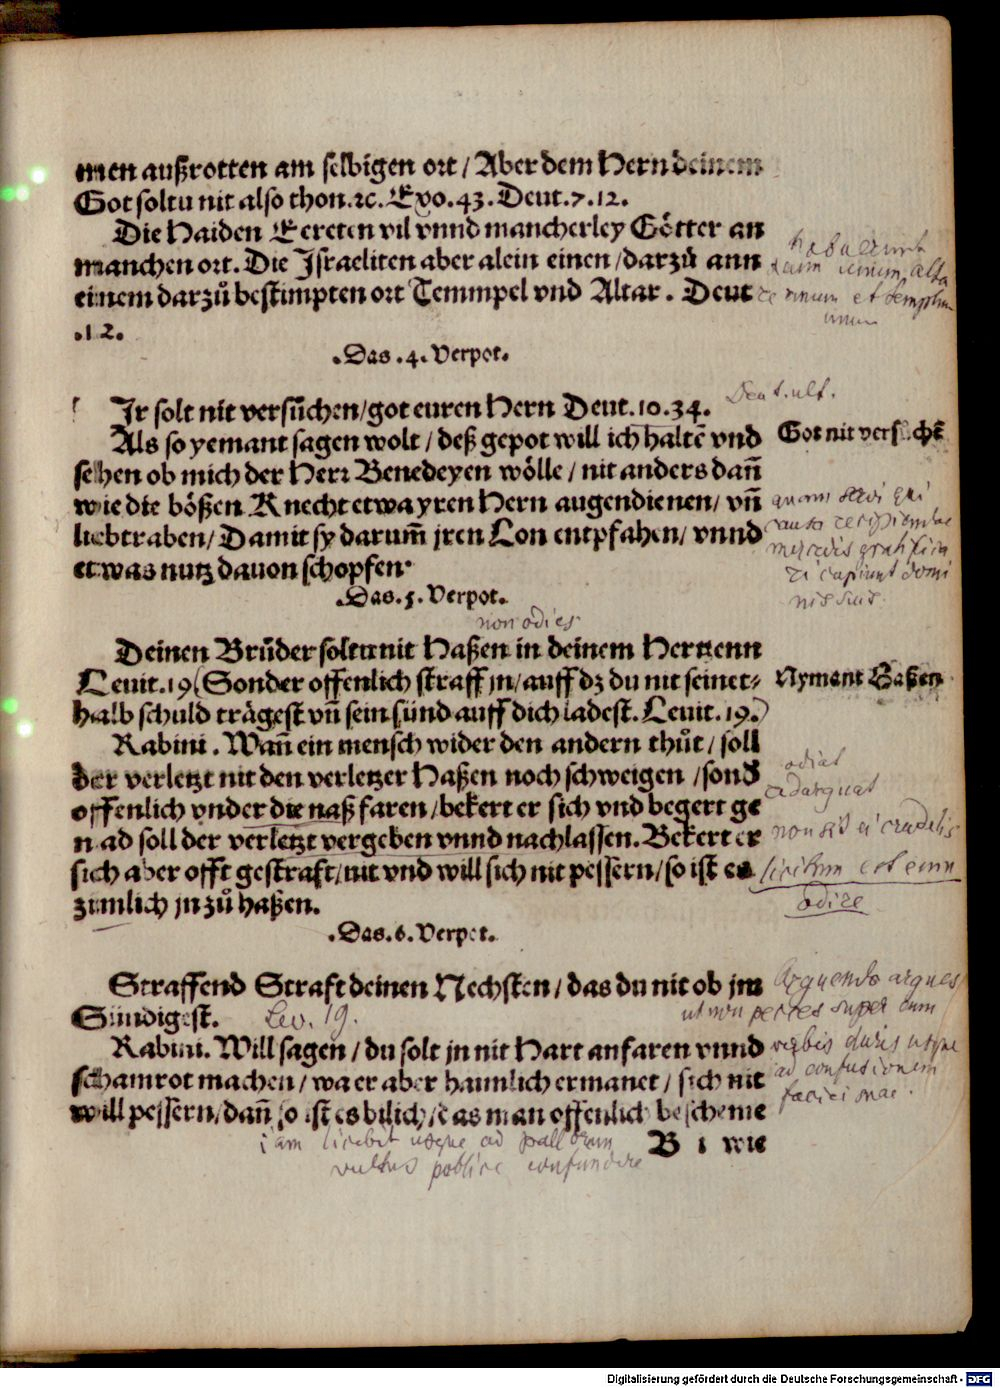 men außrotten am selbigen ort / Aber dem Hern deinem
Got soltu nit also thon.ꝛc. Exo.43. Deut.7.12.
Die Haiden Eereten vil vnnd mancherley Götter an
manchen ort. Die Jsraeliten aber alein einen / darzů ann
einem darzů bestimpten ort Temmpel vnd Altar. Deut
.12.
habuerunt
unum alta
re unum et templum
unum
.Das .4. Verpot.
Deut. ult.
Jr solt nit versůchen / got euren Hern Deut.10.34.
Als so yemant sagen wolt / deß gepot will ich haltē vnd
Got nit versůchē
sehen ob mich der Herr Benedeyen wölle / nit anders dañ
wie die bößen Knecht etwa yren Hern augendienen / vñ
liebtraben / Damit sy darum̃ jren Lon entpfahen / vnnd
etwas nutz dauon schopfen.
quam servi qui
causa recipiendae
mercedis gratifica
ri capiunt domi
nis suis.
.Das .5. Verpot.
non odies
Deinen Brůder soltu nit Haßen in deinem Hertzenn
Leuit.19 (Sonder offenlich straff jn / auff dz du nit seinet⸗
Nymant Haßen
halb schuld trägest vñ sein sünd auff dich ladest. Leuit.19.)
Rabini. Wañ ein mensch wider den andern thůt / soll
der verletzt nit den verletzer Haßen noch schweigen / sond
offenlich vnder die naß faren / bekert er sich vnd begert ge
nad soll der verletzt vergeben vnnd nachlassen. Bekert er
sich aber offt gestraft / nit vnd will sich nit pessern / so ist es
zimlich jn zů haßen.
odiat
redarguat
non sit ei crudelis
licitum est eum
odire
.Das .6. Verpot.
Straffend Straft deinen Nechsten / das du nit ob jm
Sündigest.
Lev. 19.
Arguendo argues
ut non pecces super eum
Rabini. Will sagen / du solt jn nit Hart anfaren vnnd
schamrot machen / wa er aber haimlich ermanet / sich nit
will pessern / dañ so ist es bilich / das man offenlich bescheme
verbis duris usque
ad confusionem
faciei suae.
iam licebit usque ad pallorem
vultus publice confundere
B i wie
Digitalisierung gefördert durch die Deutsche Forschungsgemeinschaft - DFG